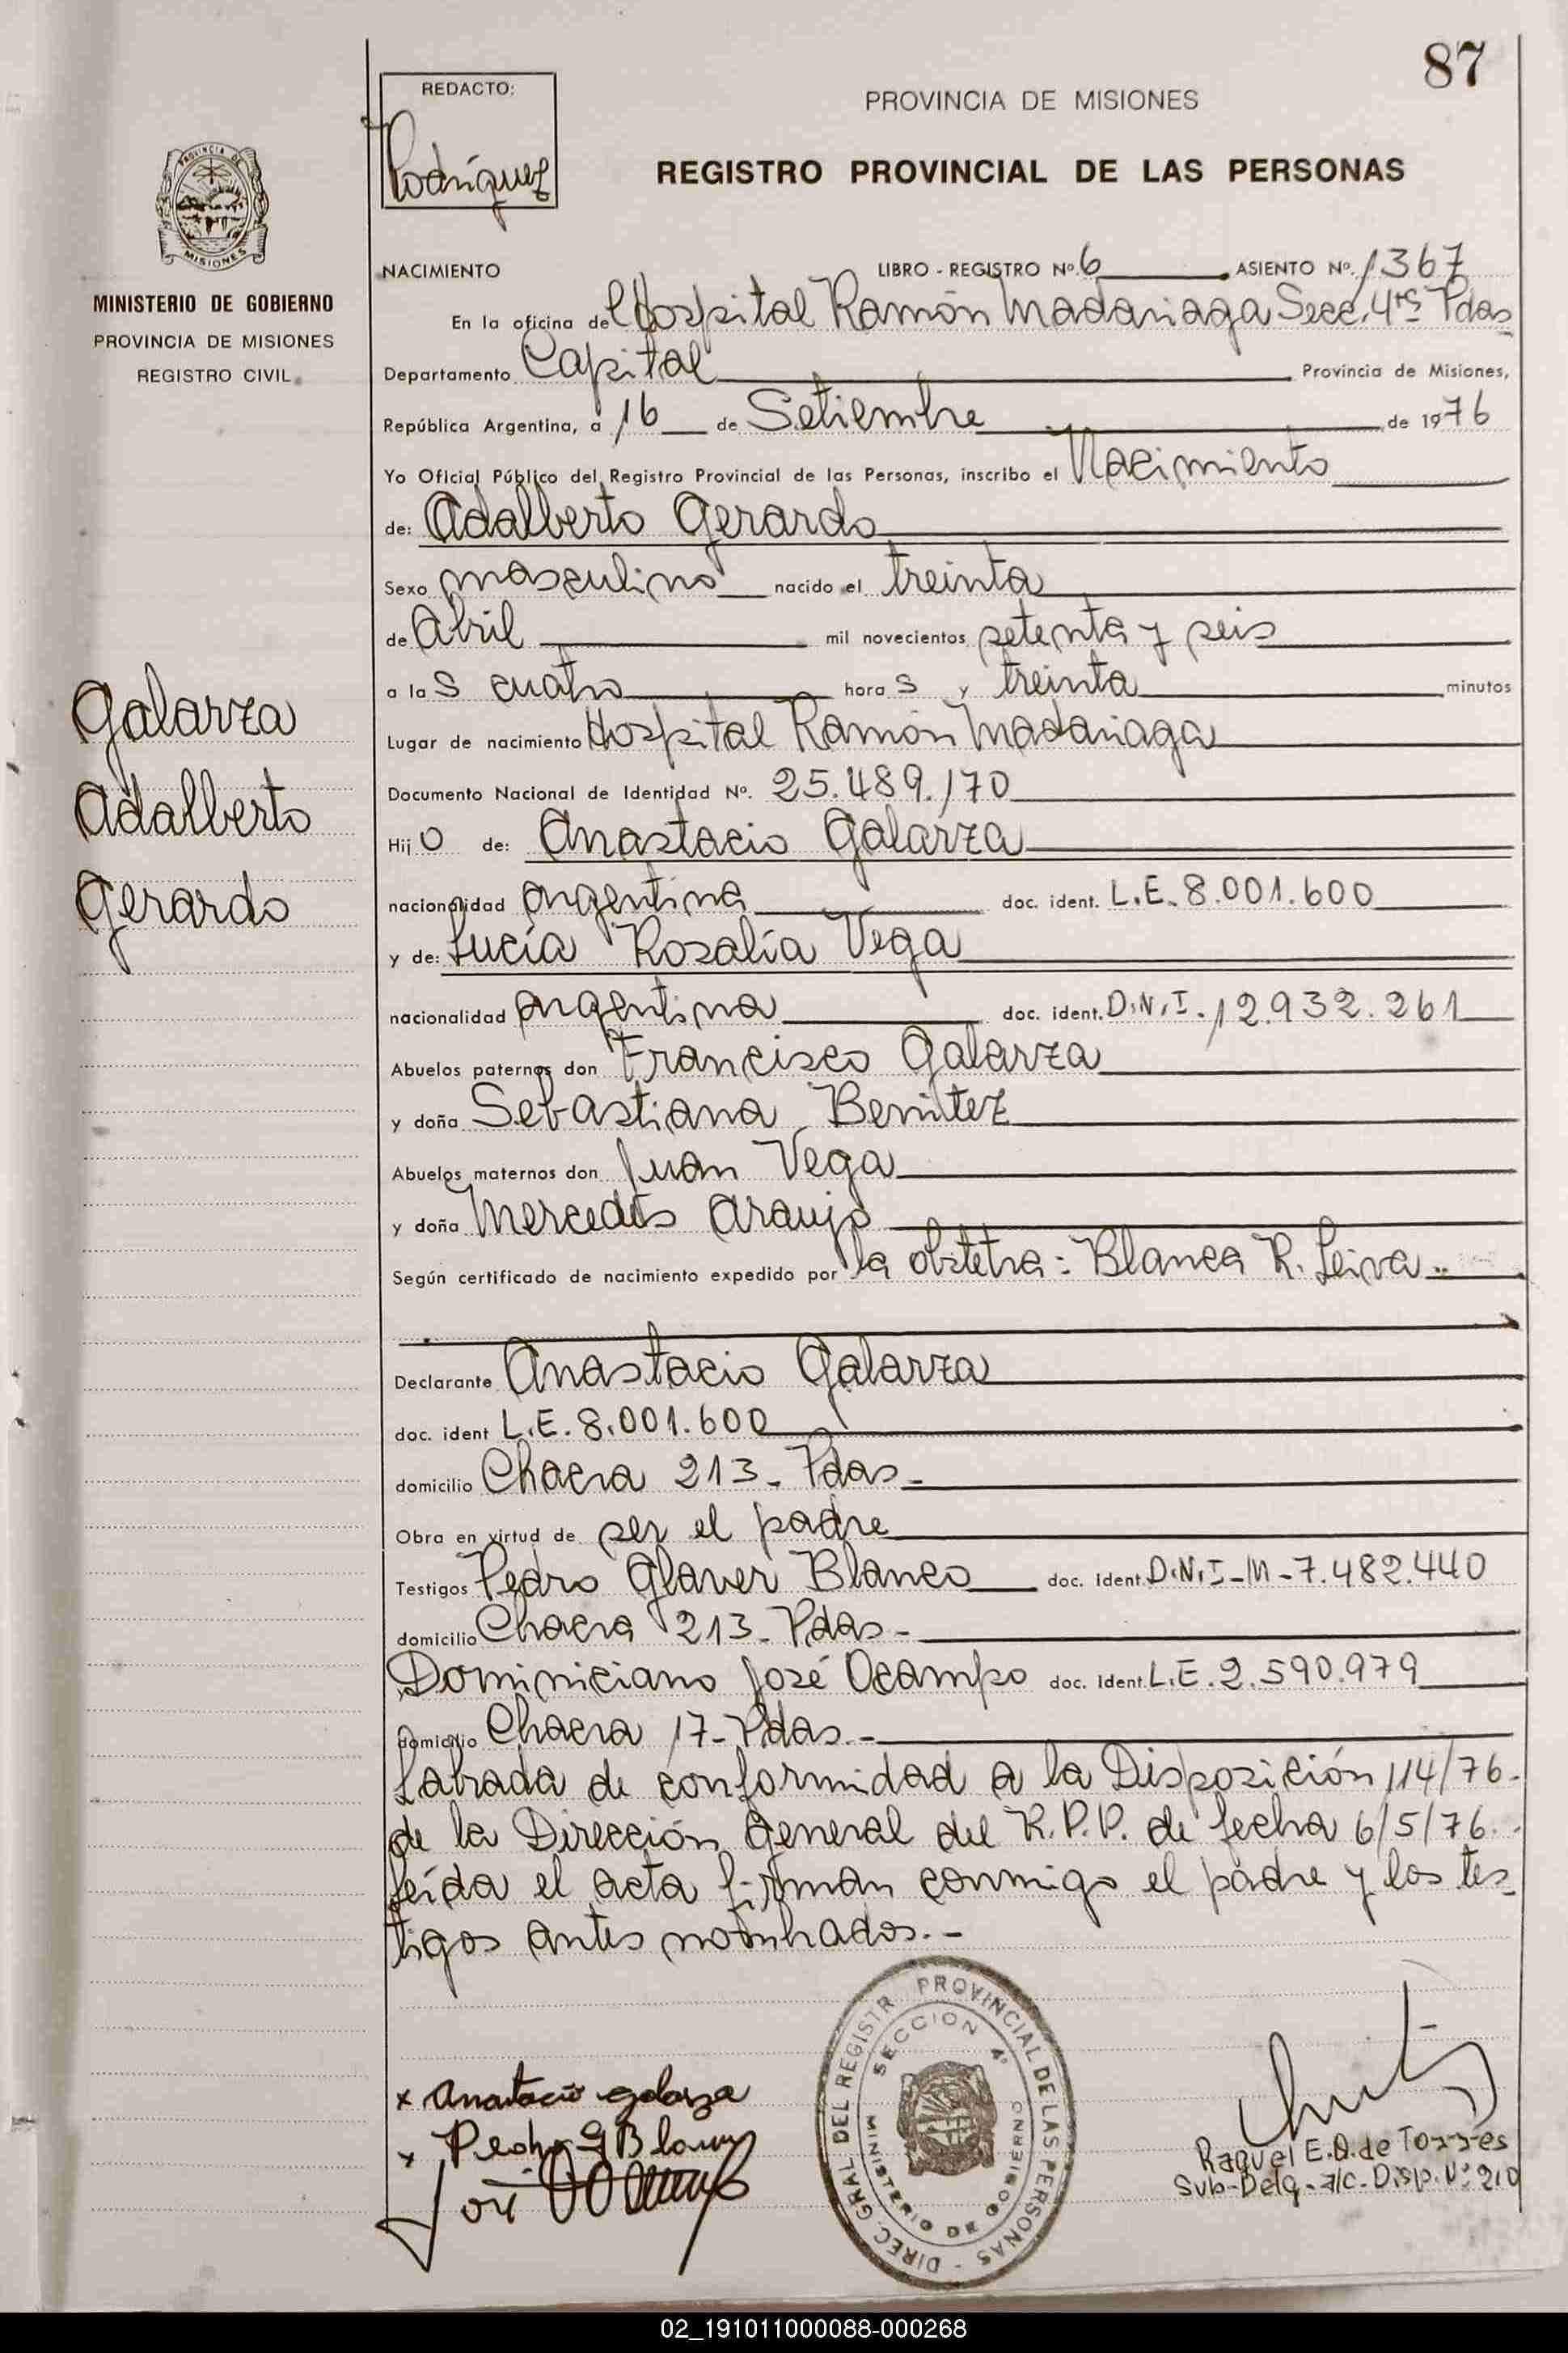 87
REDACTO:
Rodríguez
PROVINCIA DE MISIONES
REGISTRO PROVINCIAL DE LAS PERSONAS
PROVINCIA DE
MISIONES
MINISTERIO DE GOBIERNO
PROVINCIA DE MISIONES
REGISTRO CIVIL
Galarza
Adalberto
Gerardo
NACIMIENTO LIBRO - REGISTRO Nº. 6 ASIENTO Nº. 1367
En la oficina del Hospital Ramón Madariaga Secc. 4ta Pdas
Departamento Capital Provincia de Misiones,
República Argentina, a 16 de Setiembre de 1976
Yo Oficial Público del Registro Provincial de las Personas, inscribo el Nacimiento
de: Adalberto Gerardo
Sexo masculino nacido el treinta
de Abril mil novecientos setenta y seis
a las cuatro horas y treinta minutos
Lugar de nacimiento Hospital Ramón Madariaga
Documento Nacional de Identidad Nº. 25.489.170
Hijo de: Anastacio Galarza
nacionalidad argentina doc. ident. L.E. 8.001.600
y de: Lucía Rosalía Vega
nacionalidad argentina doc. ident. D.N.I. 12.932.261
Abuelos paternos don Francisco Galarza
y doña Sebastiana Benitez
Abuelos maternos don Juan Vega
y doña Mercedes Araujo
Según certificado de nacimiento expedido por la obstetra: Blanca R. Leiva..
Declarante Anastacio Galarza
doc. ident L.E. 8.001.600
domicilio Chacra 213- Pdas-
Obra en virtud de ser el padre
Testigos Pedro Glaver Blanco doc. ident. D.N.I-M-7.482.440
domicilio Chacra 213- Pdas-
Dominiciano José Ocampo doc. ident. L.E. 2.590.979
domicilio Chacra 17- Pdas.-
Labrada de conformidad a la Disposición 114/76-
de la Dirección General del R.P.P. de fecha 6/5/76.-
Leída el acta firman conmigo el padre y los tes-
tigos antes nombrados.-
x Anastacio galarza
x Pedro G Blanco
DIREC. GRAL DEL REGISTR. PROVINCIAL DE LAS PERSONAS -
SECCION 4º
MINISTERIO DE GOBIERNO
Raquel E.O. de Torres
Sub-Delg. a/c. Disp. Nº 210
02_191011000088-000268